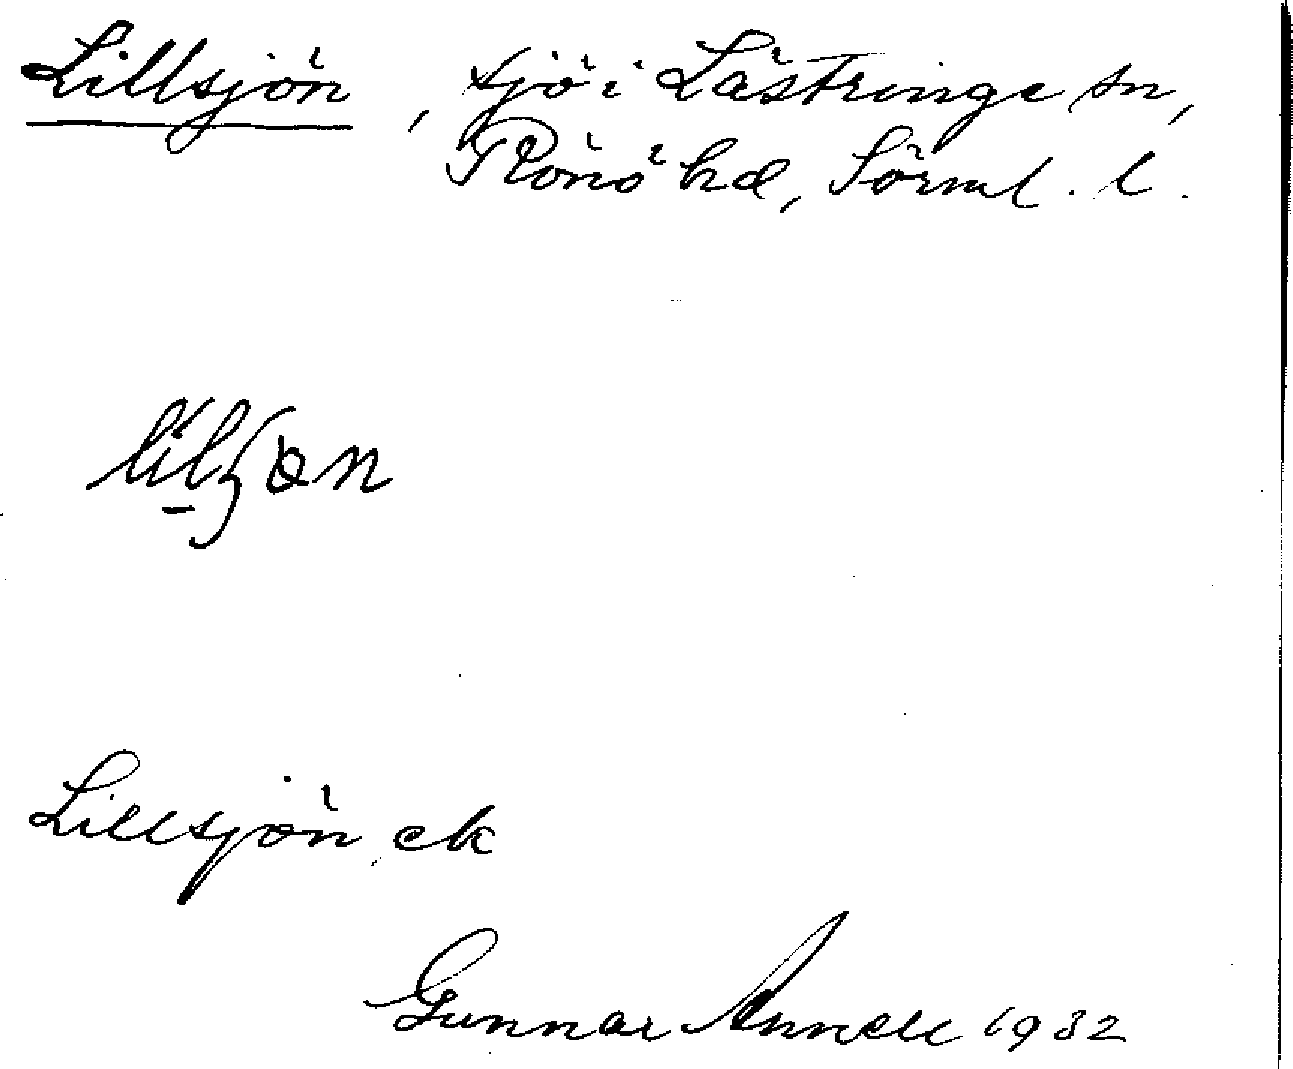 Lillsjön, sjö i Lästringe sn,
Rönö hd, Sörml. l.
Lillsjön ek
Gunnar Annell 1932